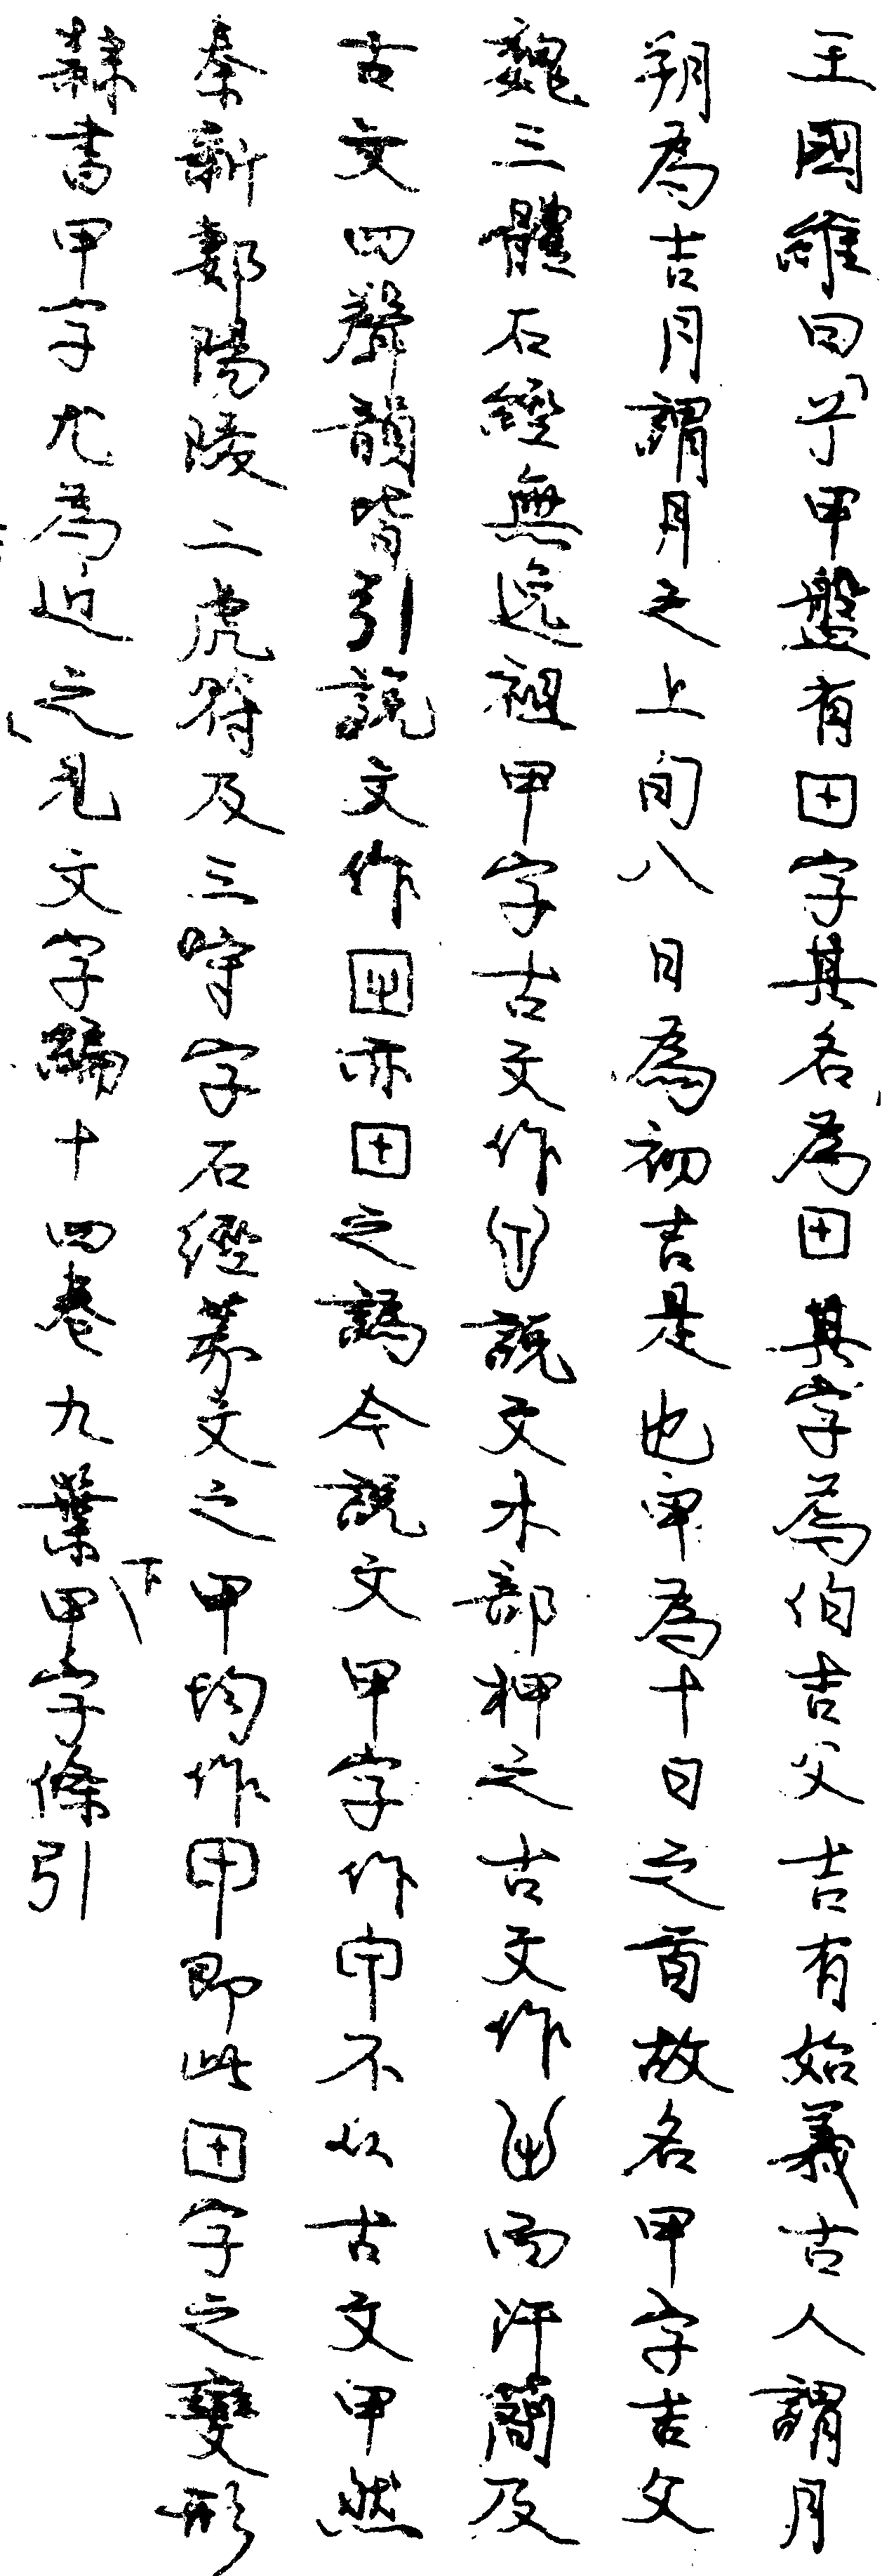 王國維曰「兮甲盤有田字其名為田其字為伯吉父吉有始義古人謂月
朔為吉月謂月之上旬八日為初吉是也甲為十日之首故名甲字吉父
魏三體石經無逸祖甲字古文作說文木部柙之古文作而汗簡及
古文四聲韻皆引說文作亦田之譌今說文甲字作不从古文甲然
秦新郪陽陵二虎符及三字石經篆文之甲均作即此田字之變形
隸書甲字尤為近之」見文字編十四卷九葉下甲字條引